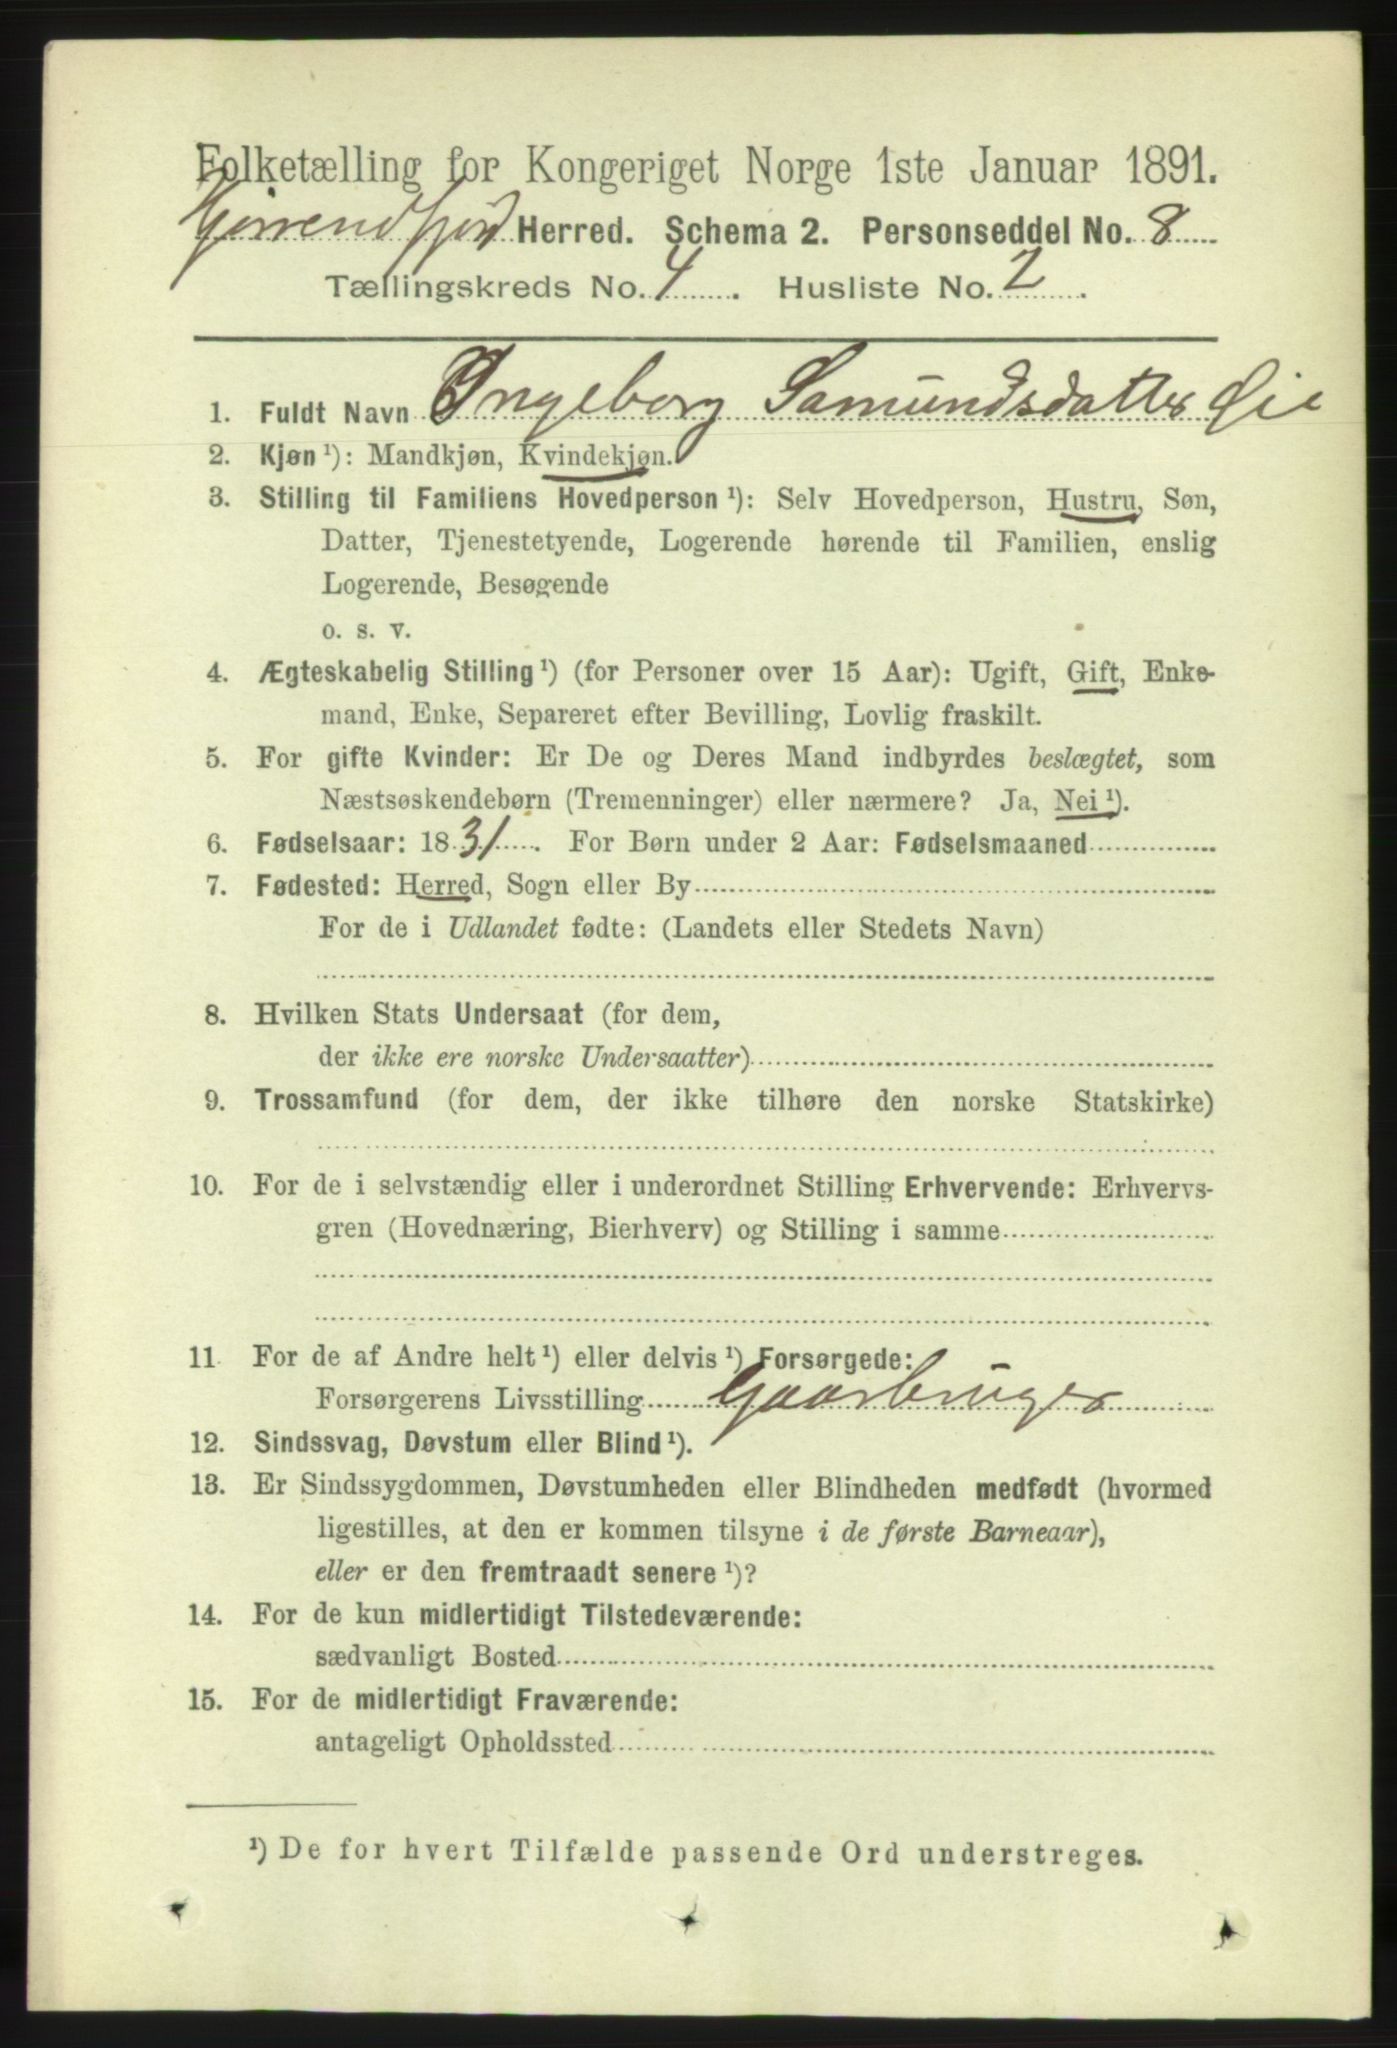 Folketælling for Kongeriget Norge 1ste Januar 1891.
Herred. Schema 2. Personseddel No. 8
Tællingskreds No. 4. Husliste No. 2.
1. Fuldt Navn Ingeborg Samundsdatter Øie
2. Kjøn ¹): Mandkjøn, Kvindekjøn.
3. Stilling til Familiens Hovedperson ¹): Selv Hovedperson, Hustru, Søn,
Datter, Tjenestetyende, Logerende hørende til Familien, enslig
Logerende, Besøgende
o. s. v.
4. Ægteskabelig Stilling ¹) (for Personer over 15 Aar): Ugift, Gift, Enke-
mand, Enke, Separeret efter Bevilling, Lovlig fraskilt.
5. For gifte Kvinder: Er De og Deres Mand indbyrdes beslægtet, som
Næstsøskendebørn (Tremenninger) eller nærmere? Ja, Nei ¹).
6. Fødselsaar: 1831. For Børn under 2 Aar: Fødselsmaaned
7. Fødested: Herred, Sogn eller By
For de i Udlandet fødte: (Landets eller Stedets Navn)
8. Hvilken Stats Undersaat (for dem,
der ikke ere norske Undersaatter)
9. Trossamfund (for dem, der ikke tilhøre den norske Statskirke)
10. For de i selvstændig eller i underordnet Stilling Erhvervende: Erhvervs-
gren (Hovednæring, Bierhverv) og Stilling i samme
11 For de af Andre helt ¹) eller delvis ¹) Forsørgede:
Forsørgerens Livsstilling Gaarbruger
12. Sindssvag, Døvstum eller Blind ¹).
13. Er Sindssygdommen, Døvstumheden eller Blindheden medfødt (hvormed
ligestilles, at den er kommen tilsyne i de første Barneaar),
eller er den fremtraadt senere ¹)?
14. For de kun midlertidigt Tilstedeværende:
sædvanligt Bosted
15. For de midlertidigt Fraværende:
antageligt Opholdssted
¹) De for hvert Tilfælde passende Ord understreges.